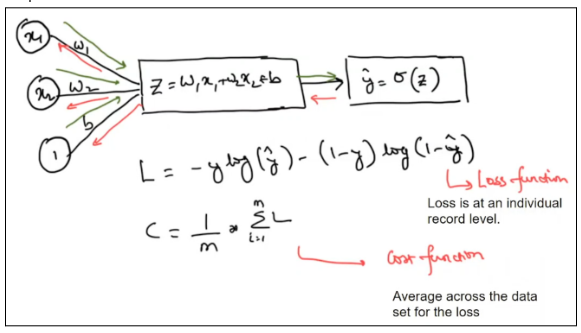 x₁
w₁
x₂
w₂
1
b
Z = w₁x₁+w₂x₂+b
ŷ = σ(z)
L = -y log(ŷ) - (1-y) log(1-ŷ)
Loss function
Loss is at an individual
record level.
C = 1/m * Σᵢ₌₁ᵐ L
Cost function
Average across the data
set for the loss